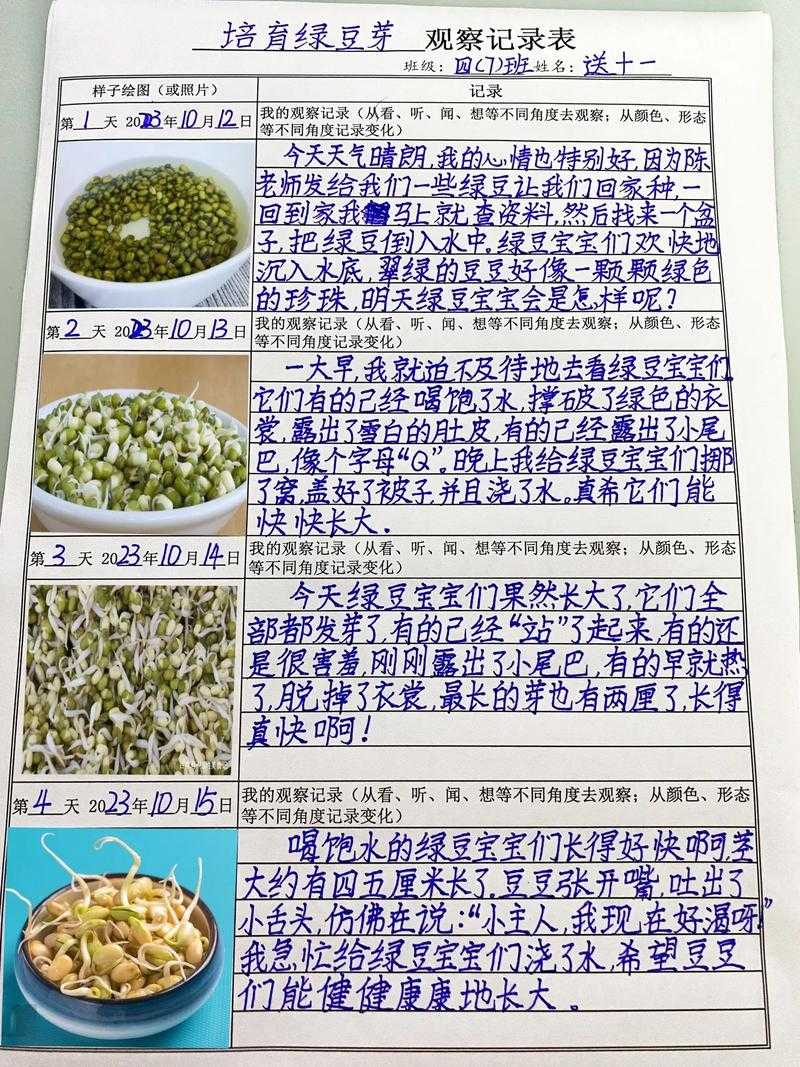 培育绿豆芽 观察记录表
班级：四(7)班 姓名：送十一
样子绘图（或照片）
记录
第1天 2023年10月12日
我的观察记录（从看、听、闻、想等不同角度去观察；从颜色、形态
等不同角度记录变化）
今天天气晴朗,我的心情也特别好,因为陈
老师发给我们一些绿豆让我们回家种,一
回到家我马上就查资料,然后找来一个盆
子,把绿豆倒入水中。绿豆宝宝们欢快地
沉入水底,翠绿的豆豆好像一颗颗绿色
的珍珠,明天绿豆宝宝会是怎样呢?
第2天 2023年10月13日
我的观察记录（从看、听、闻、想等不同角度去观察；从颜色、形态
等不同角度记录变化）
一大早,我就迫不及待地去看绿豆宝宝们,
它们有的已经喝饱了水,撑破了绿色的衣
裳,露出了雪白的肚皮,有的已经露出了小尾
巴,像个字母“Q”。晚上我给绿豆宝宝们挪
了窝,盖好了被子,并且浇了水。真希它们能
快快长大.
第3天 2023年10月14日
我的观察记录（从看、听、闻、想等不同角度去观察；从颜色、形态
等不同角度记录变化）
今天绿豆宝宝们果然长大了,它们全
部都发芽了,有的已经“站”了起来,有的还
是很害羞,刚刚露出了小尾巴,有的早就热
了,脱掉了衣裳,最长的芽也有两厘了,长得
真快啊!
第4天 2023年10月15日
我的观察记录（从看、听、闻、想等不同角度去观察；从颜色、形态
等不同角度记录变化）
喝饱水的绿豆宝宝们长得好快啊,茎
大约有四五厘米长了,豆豆张开嘴,吐出了
小舌头,仿佛在说:“小主人,我现在好渴呀!”
我急忙给绿豆宝宝们浇了水,希望豆豆
们能健健康康地长大。